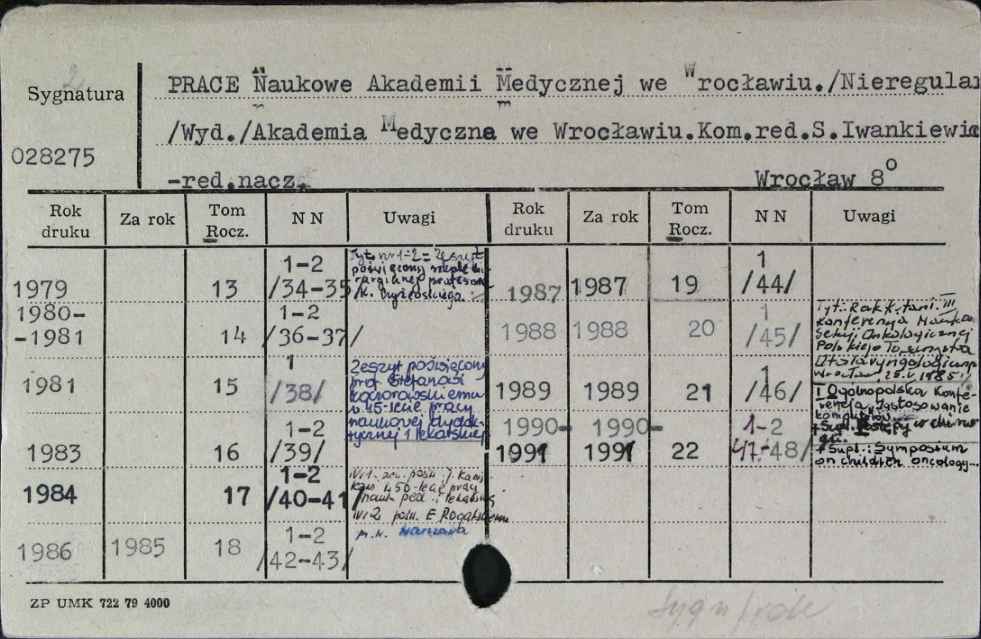 Sygnatura
028275
PRACE Naukowe Akademii Medycznej we Wrocławiu./Nieregular
/Wyd./Akademia Medyczna we Wrocławiu.Kom.red.S.Iwankiewic
-red.nacz. Wrocław 8°
Rok druku Za rok Tom Rocz. N N Uwagi Rok druku Za rok Tom Rocz. N N Uwagi
1979 13 1-2 /34-35/
Tyt. nr 1-2 = Zeszyt
poświęcony
K.
1980-
-1981 14 1-2 /36-37/
1981 15 1 /38/
Zeszyt poświęcony
prof. Stefanowi
w 45-lecie pracy
naukowej dydak-
tycznej i lekarskiej
1983 16 1-2 /39/
1984 17 1-2 /40-41/
Nr 1
450-lecie pracy
nauk. ped. i lekarskiej
Nr 2 pośw. E. Rogalskiemu
1986 1985 18 1-2 /42-43/
1987 1987 19 1 /44/
1988 1988 20 1 /45/
Tyt.: III
Konferencja Naukowa
Sekcji Onkologicznej
Polskiego
Otolaryngologicznego
Wrocław, 25.V.1985
1989 1989 21 1 /46/
I Ogólnopolska Konfe-
rencja Zastosowanie
komputerów
+ Supl.: Postępy w chirur-
gii.
1990- 1990-
1991 1991 22 1-2 47-48/
+ Supl.: Symposium
on children oncology...
ZP UMK 722 79 4000